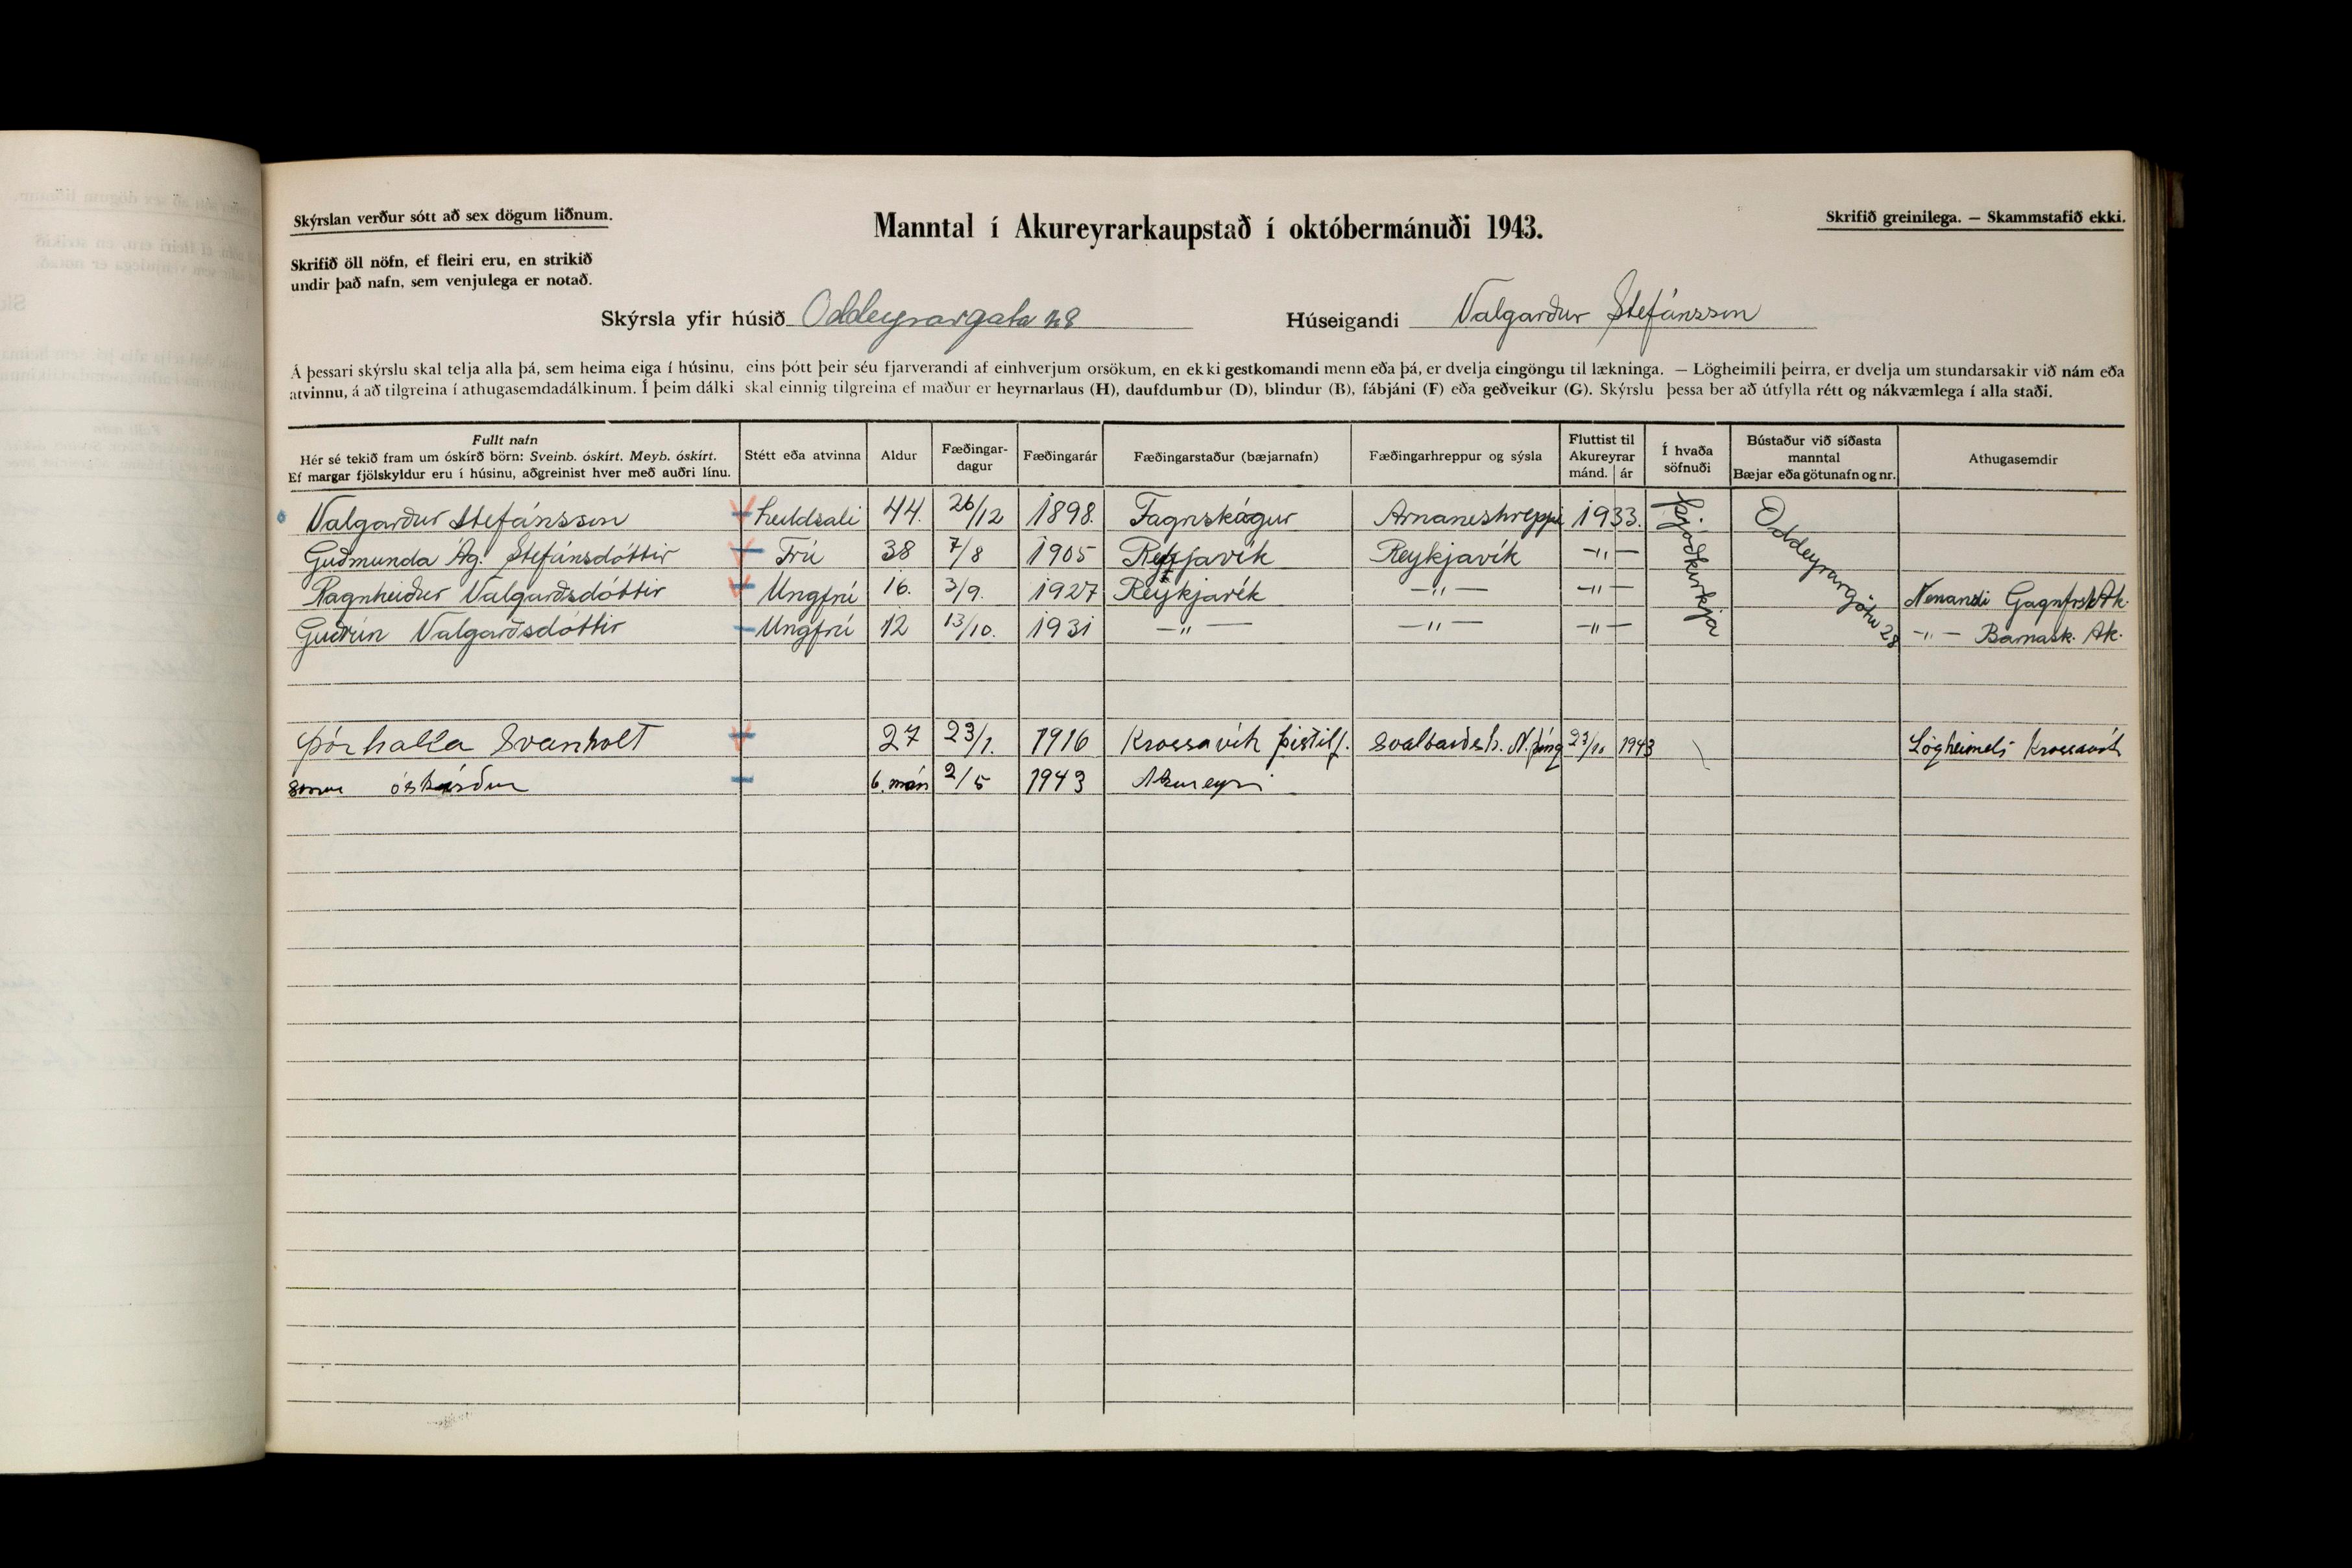 Skýrslan verður sótt að sex dögum liðnum.
Manntal í Akureyrarkaupstað í októbermánuði 1943.
Skrifið greinilega. — Skammstafið ekki.
Skrifið öll nöfn, ef fleiri eru, en strikið
undir það nafn, sem venjulega er notað.
Skýrsla yfir húsið Oddeyrargata 28 Húseigandi Valgarður Stefánsson
Á þessari skýrslu skal telja alla þá, sem heima eiga í húsinu, eins þótt þeir séu fjarverandi af einhverjum orsökum, en ekki gestkomandi menn eða þá, er dvelja eingöngu til lækninga. — Lögheimili þeirra, er dvelja um stundarsakir við nám eða
atvinnu, á að tilgreina í athugasemdadálkinum. Í þeim dálki skal einnig tilgreina ef maður er heyrnarlaus (H), daufdumbur (D), blindur (B), fábjáni (F) eða geðveikur (G). Skýrslu þessa ber að útfylla rétt og nákvæmlega í alla staði.
Fullt nafn
Hér sé tekið fram um óskírð börn: Sveinb. óskírt. Meyb. óskírt.
Ef margar fjölskyldur eru í húsinu, aðgreinist hver með auðri línu.
Stétt eða atvinna
Aldur
Fæðingar-
dagur
Fæðingarár
Fæðingarstaður (bæjarnafn)
Fæðingarhreppur og sýsla
Fluttist til
Akureyrar
mánd. ár
Í hvaða
söfnuði
Bústaður við síðasta
manntal
Bæjar eða götunafn og nr.
Athugasemdir
Valgarður Stefánsson heildsali 44. 26/12 1898. Fagriskógur Arnaneshreppi 1933. Þjóðkirkja Oddeyrargötu 28
Guðmunda Ág. Stefánsdóttir Frú 38 7/8 1905 Reykjavík Reykjavík —"—
Ragnheiður Valgarðsdóttir Ungfrú 16. 3/9. 1927 Reykjavík —"— —"— Nemandi Gagnfrsk Ak.
Guðrún Valgarðsdóttir Ungfrú 12 13/10. 1931 —"— —"— —"— —"— Barnask. Ak.
Þórhalla Svanholt 27 23/1. 1916 Krossavík Þistilf. Svalbarðsh. N. þing 23/10 1943 Lögheimili Krossavík
óskírður 6. mán 2/5 1943 Akureyri